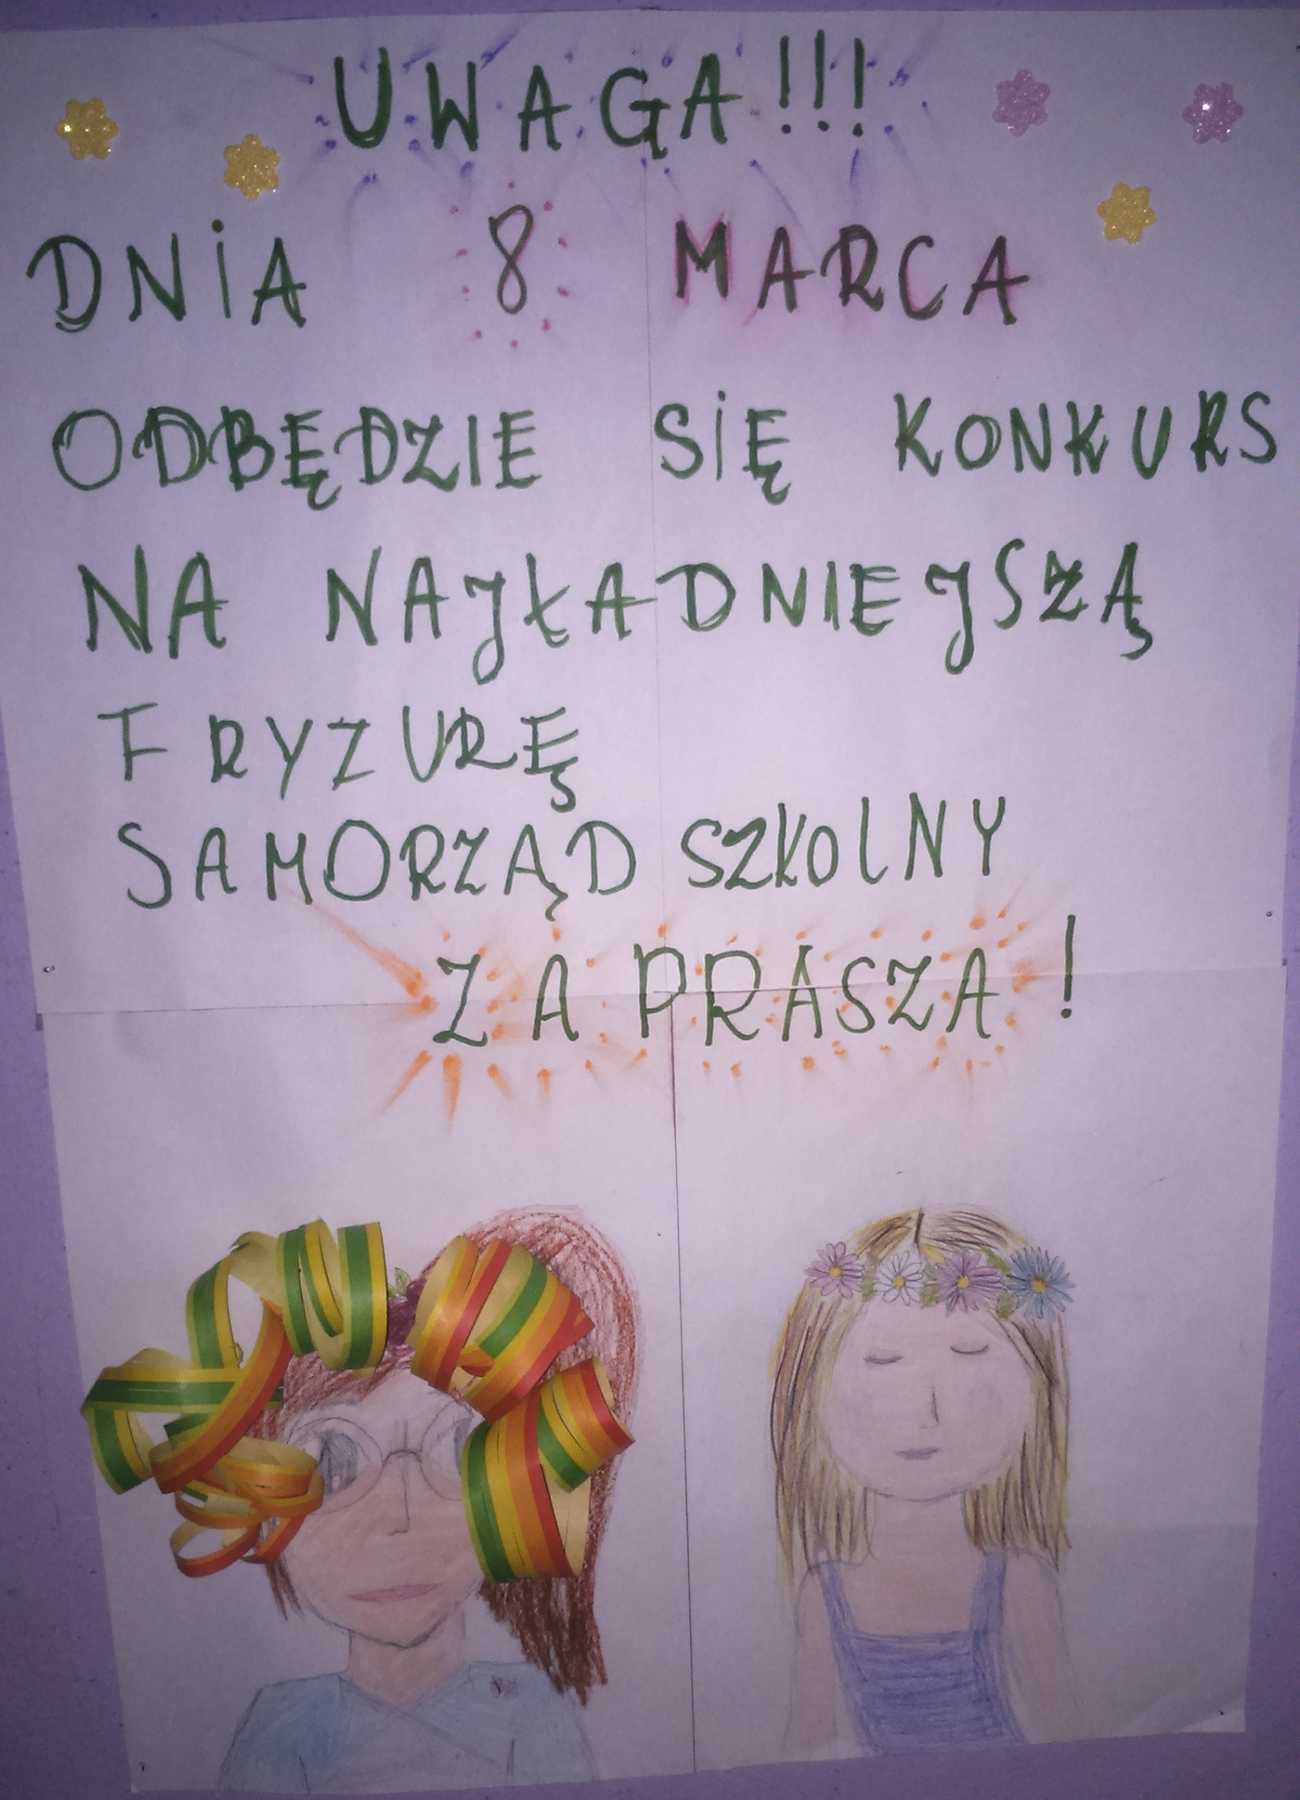 UWAGA!!!
DNIA 8 MARCA
ODBĘDZIE SIĘ KONKURS
NA NAJŁADNIEJSZĄ
FRYZURĘ
SAMORZĄD SZKOLNY
ZAPRASZA!